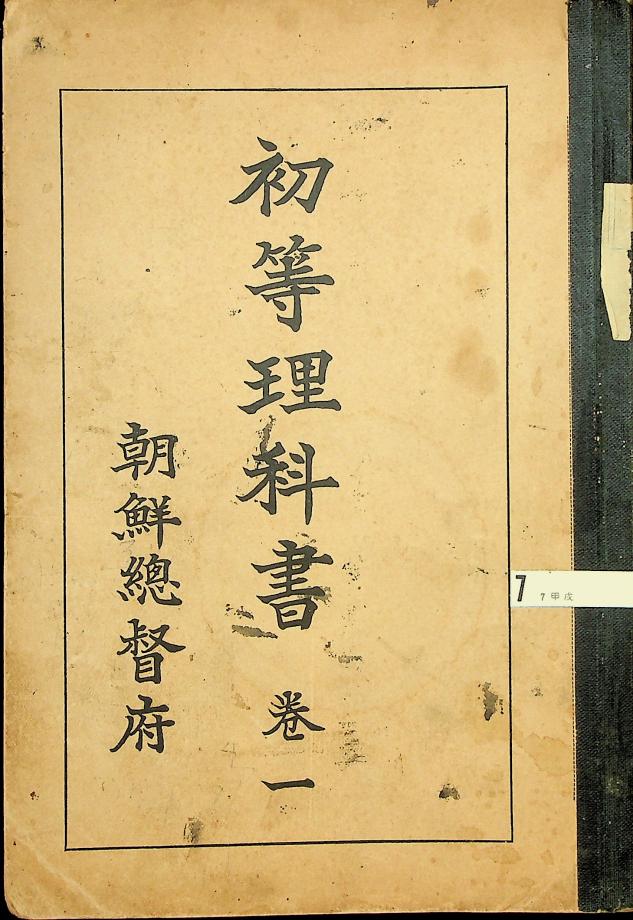 初等理科書 卷一
朝鮮總督府
7 7 甲戌